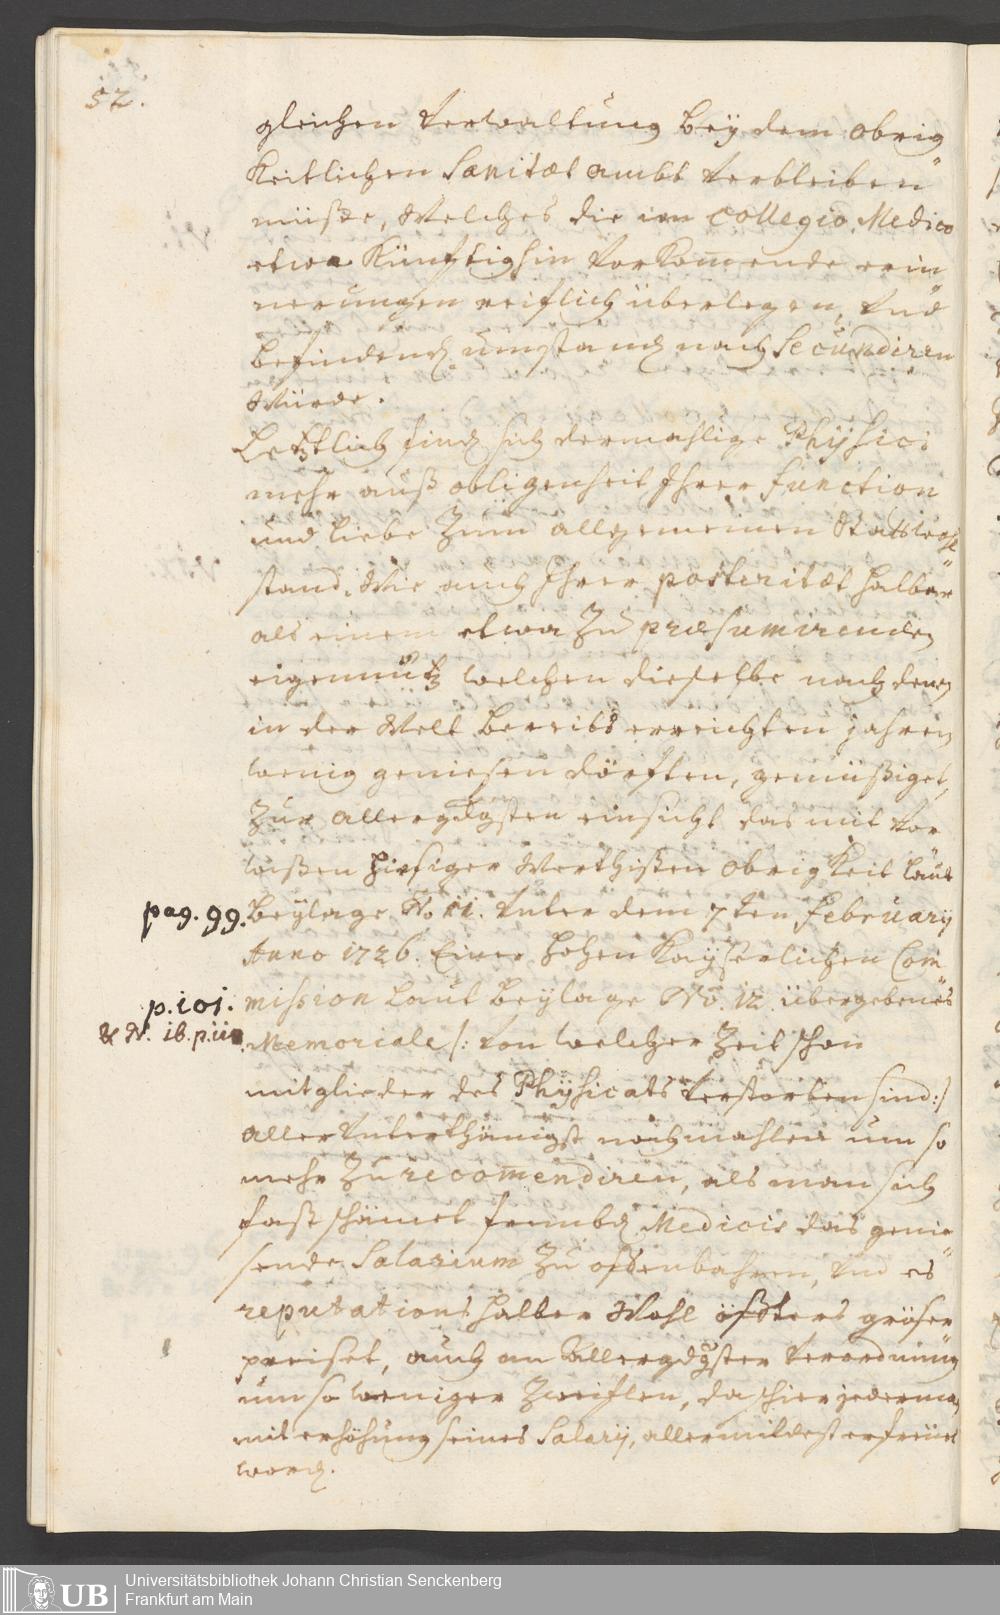 52.
gleichen Verwaltung bey dem obrig
Keitlichen Sanitæt ambt verbleiben
müßte, Welches die im Collegio Medico
etwa Künftighin vorkomende erin
nerungen reiflich überlegen, und
befindend. umständ nach Secundiren
Würde.
Letztlich find sich dermahlige Physici
mehr auß obligenheit Ihrer function
und liebe Zum allgemeinen Stattwohl
stand, Wie auch Ihrer posteritæt halber
als einem etwa Zu præsumirenden
eigennutz welchen dieselbe nach denen
in der Welt bereits erreichten jahren
wenig geniesen dörften, gemüßiget,
Zur allergdgsten einsicht das mit vor
wißen hiesiger Werthisten Obrigkeit laut
pag. 99. Beylage No. 11. unter dem 7ten February
Anno 1726. Einer hohen Kayserlichen Com
p. 101. mission laut Beylage No. 12. übergebenes
& N. 16. p. 11 Memoriale /: von welcher Zeit schon
mitglieder des Physicats verstorben sind :/
allerunterthänigst nochmahlen um so
mehr Zu recomendiren, als man sich
fast schämet frembd. Medicis das genie
sende Salarium Zu offenbahren, und es
reputations halber Wohl öffters gröser
preiset, auch an Allergdgster Verordnung
um so weniger Zweiflen, da schier jederman
mit erhöhung seines Salarij, allermildest erfreuet
word.
UB Universitätsbibliothek Johann Christian Senckenberg
Frankfurt am Main